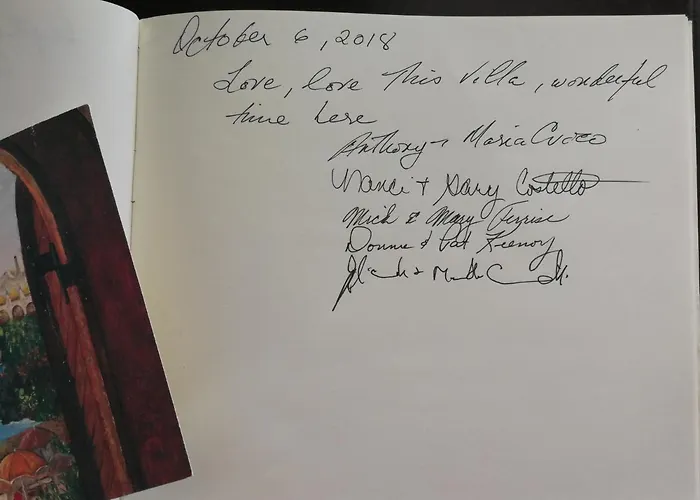 October 6, 2018
Love, love this Villa, wonderful
time here
Anthony + Maria Cuoco
Nanci + Gary Costello
Mick & Mary
Donna & Pat